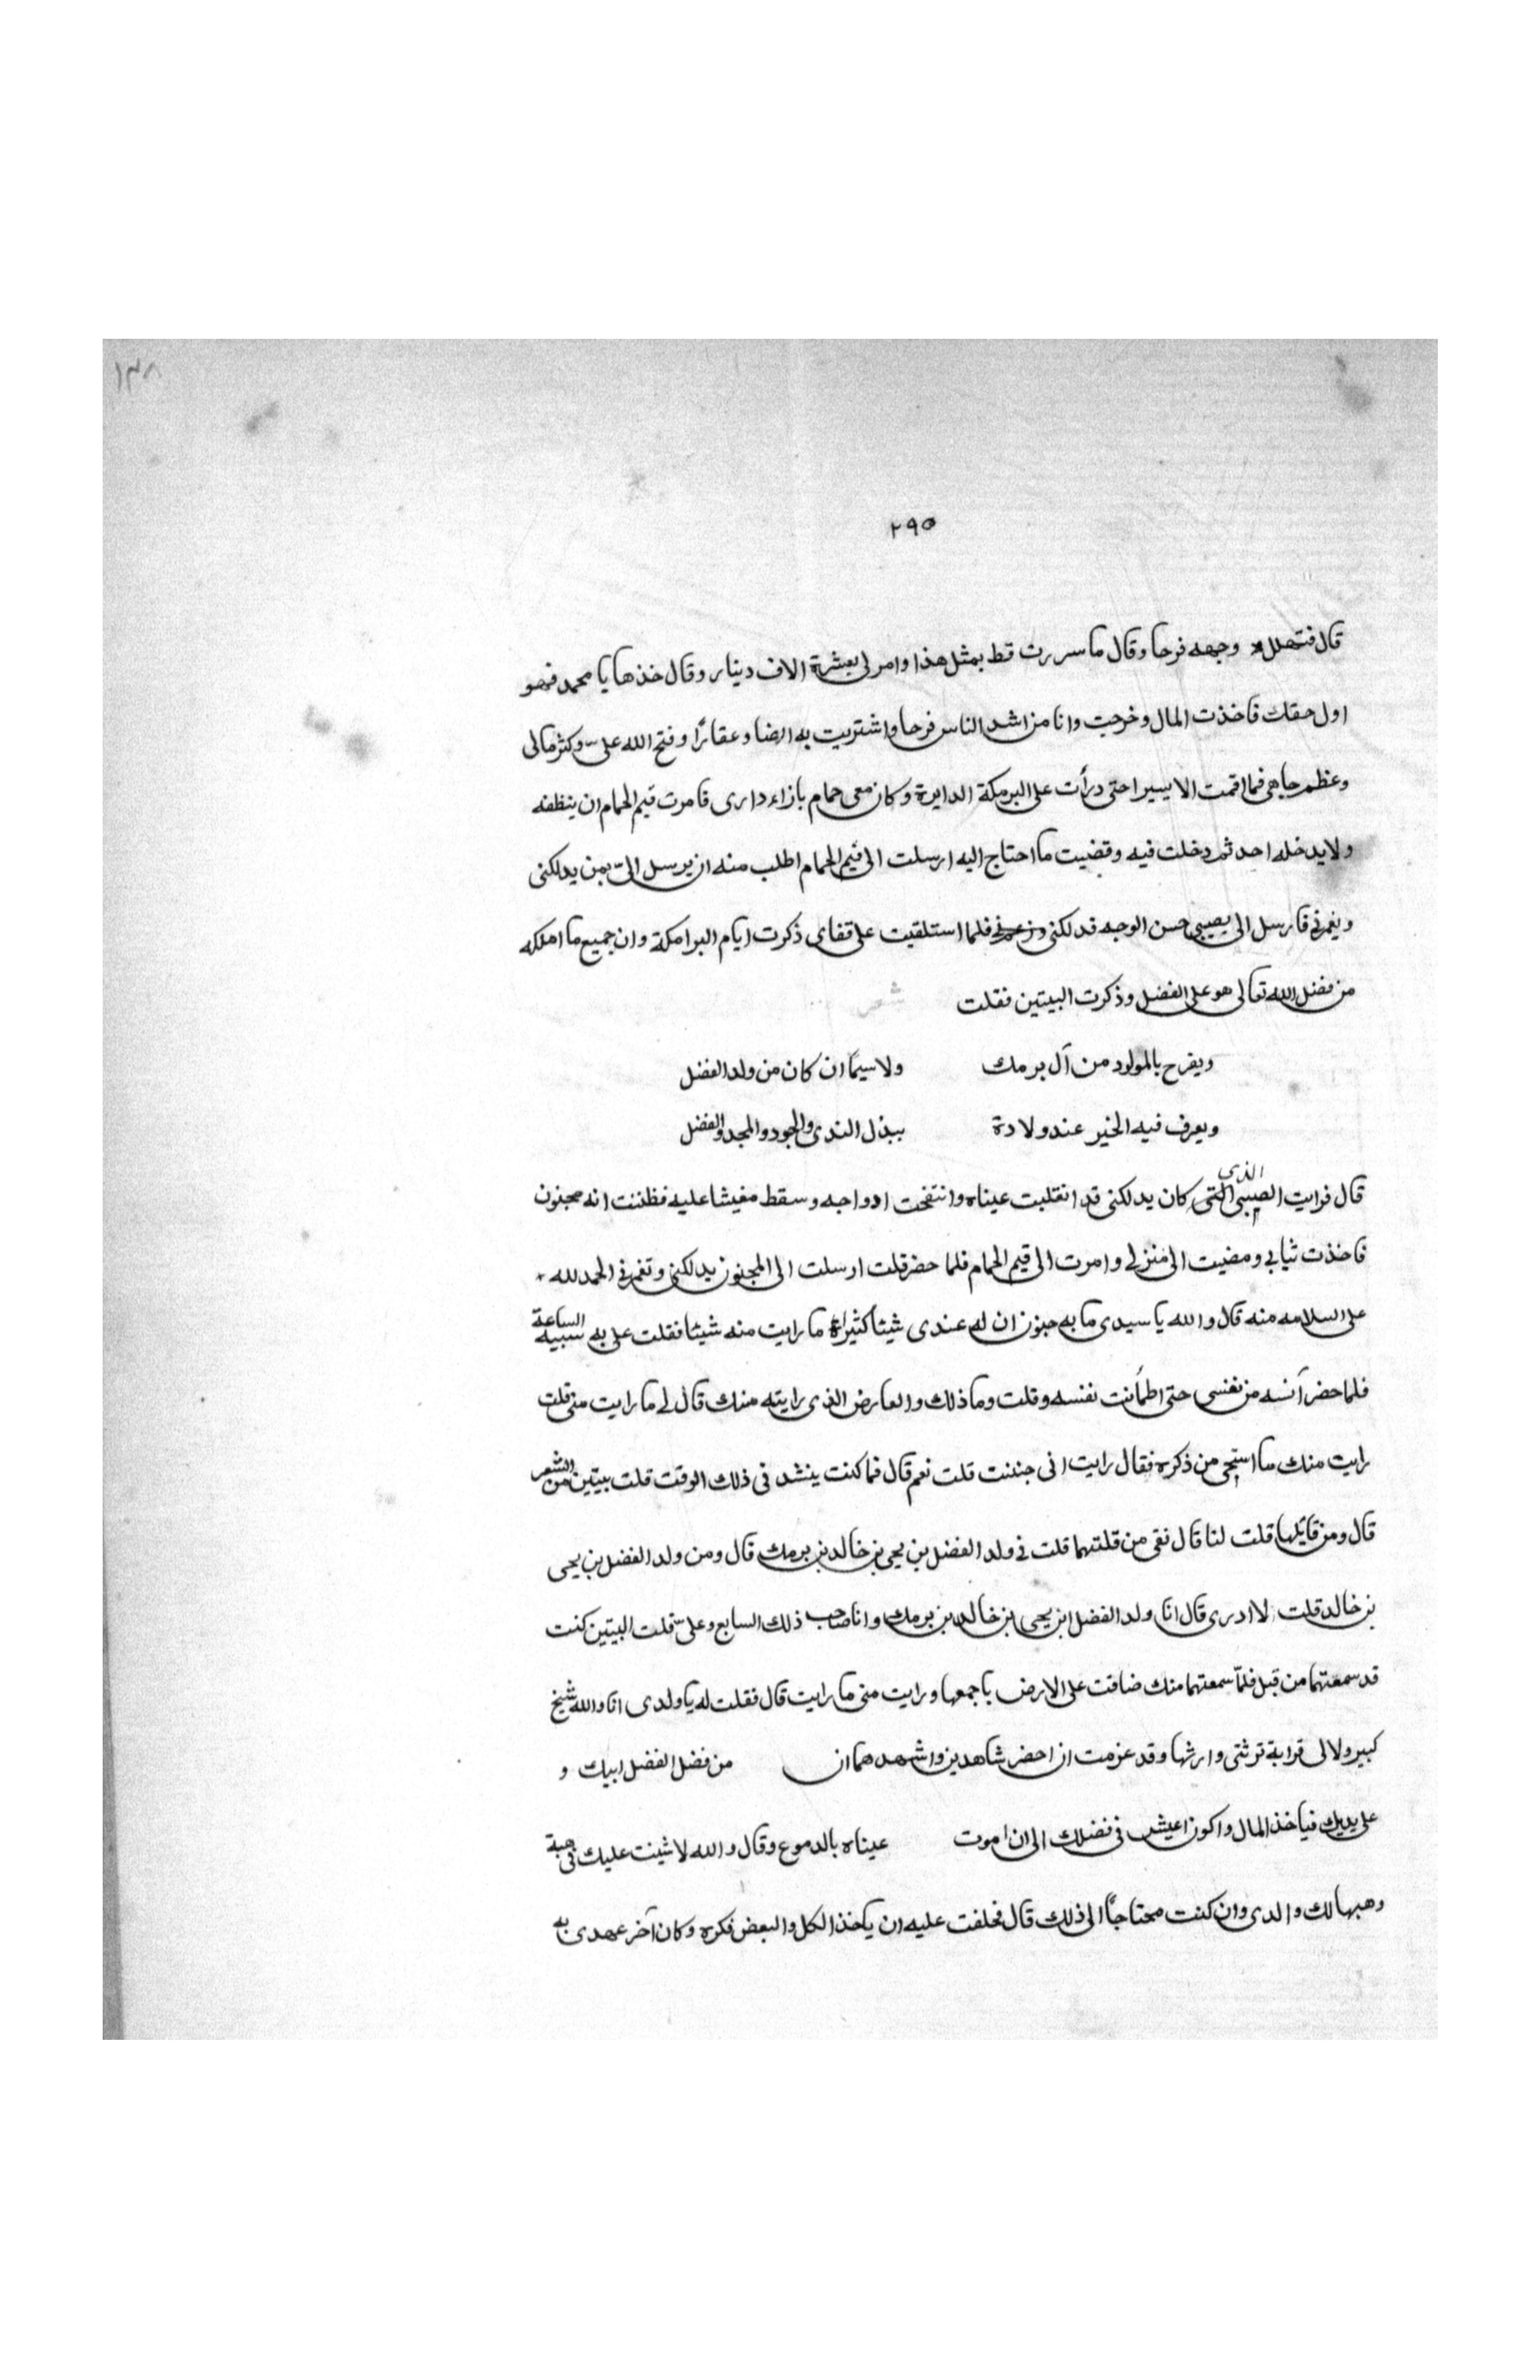 ١٣٨
٢٩٥
قال فتهلل وجهه فرحا وقال ما سررت قط بمثل هذا وامر لى بعشرة الاف دينار وقال خذها يا محمد فهو
اول حقك فاخذت المال وخرجت وانا من اشد الناس فرحا واشتريت به ارضا وعقارًا وفتح الله علىّ وكثر مالى
وعظم جاهى فما اقمت الا يسيرا حتى درأت على البرمكة الدايرة وكان معى حمام بازاء دارى فامرت قيم الحمام ان ينظفه
ولا يدخله احد ثم دخلت فيه وقضيت ما احتاج اليه ارسلت الى قيم الحمام اطلب منه ان يرسل الىّ بمن يدلكنى
ويغمزنى فارسل الى بصبى حسن الوجه فدلكنى فلما استلقيت على قفاى ذكرت ايام البرامكة وان جميع ما املكه
من فضل الله تعالى هو على الفضل وذكرت البيتين فقلت شعر
ويفرح بالمولود من آل برمك ولا سيما ان كان من ولد الفضل
ويعرف فيه الخير عند ولادة ببذل الندى والجود والمجد والفضل
الذى
قال فرايت الصبى التى كان يدلكنى قد انقلبت عيناه وانتفخت اوداجه وسقط مغيشا عليه فظننت انه مجنون
فاخذت ثيابي ومضيت الى منزلى وامرت الى قيم الحمام فلما حضر قلت ارسلت الى المجنون يدلكنى وتغمزنى الحمد لله
على السلامه منه قال والله يا سيدى ما به جنون ان له عندى شيئا كثيرا ما رايت منه شيئا فقلت على به الساعة
فلما حضر آنسه من نفسى حتى اطمأنت نفسه وقلت وما ذلك والعارض الذى رايته منك قال لى ما رايت منى قلت
رايت منك ما استحى من ذكره فقال رايت انى جننت قلت نعم قال فما كنت ينشد فى ذلك الوقت قلت بيتين من الشعر
قال ومن قايلها قلت لنا قال نفى من قلتهما قلت فى ولد الفضل بن يحيى بن خالد بن برمك قال ومن ولد الفضل بن يحيى
بن خالد قلت لا ادرى قال انا ولد الفضل ابن يحيى بن خالد بن برمك وانا صاحب ذلك السابع وعلىّ قلت البيتين كنت
قد سمعتهما من قبل فلمّا سمعتهما منك ضاقت على الارض باجمعها ورايت منى ما رايت قال فقلت له يا ولدى انا والله شيخ
كبير ولا لى قرابة ترثنى وارثها وقد عزمت ان احضر شاهدين واشهدهما ان من فضل الفضل ابيك و
على يديك فياخذ المال واكون اعيش فى فضلك الى ان اموت عيناه بالدموع وقال والله لا شينت عليك فى هبة
وهبها لك والدى وان كنت محتاجًا الى ذلك قال فحلفت عليه ان ياخذ الكل والبعض فكره وكان آخر عهدى به